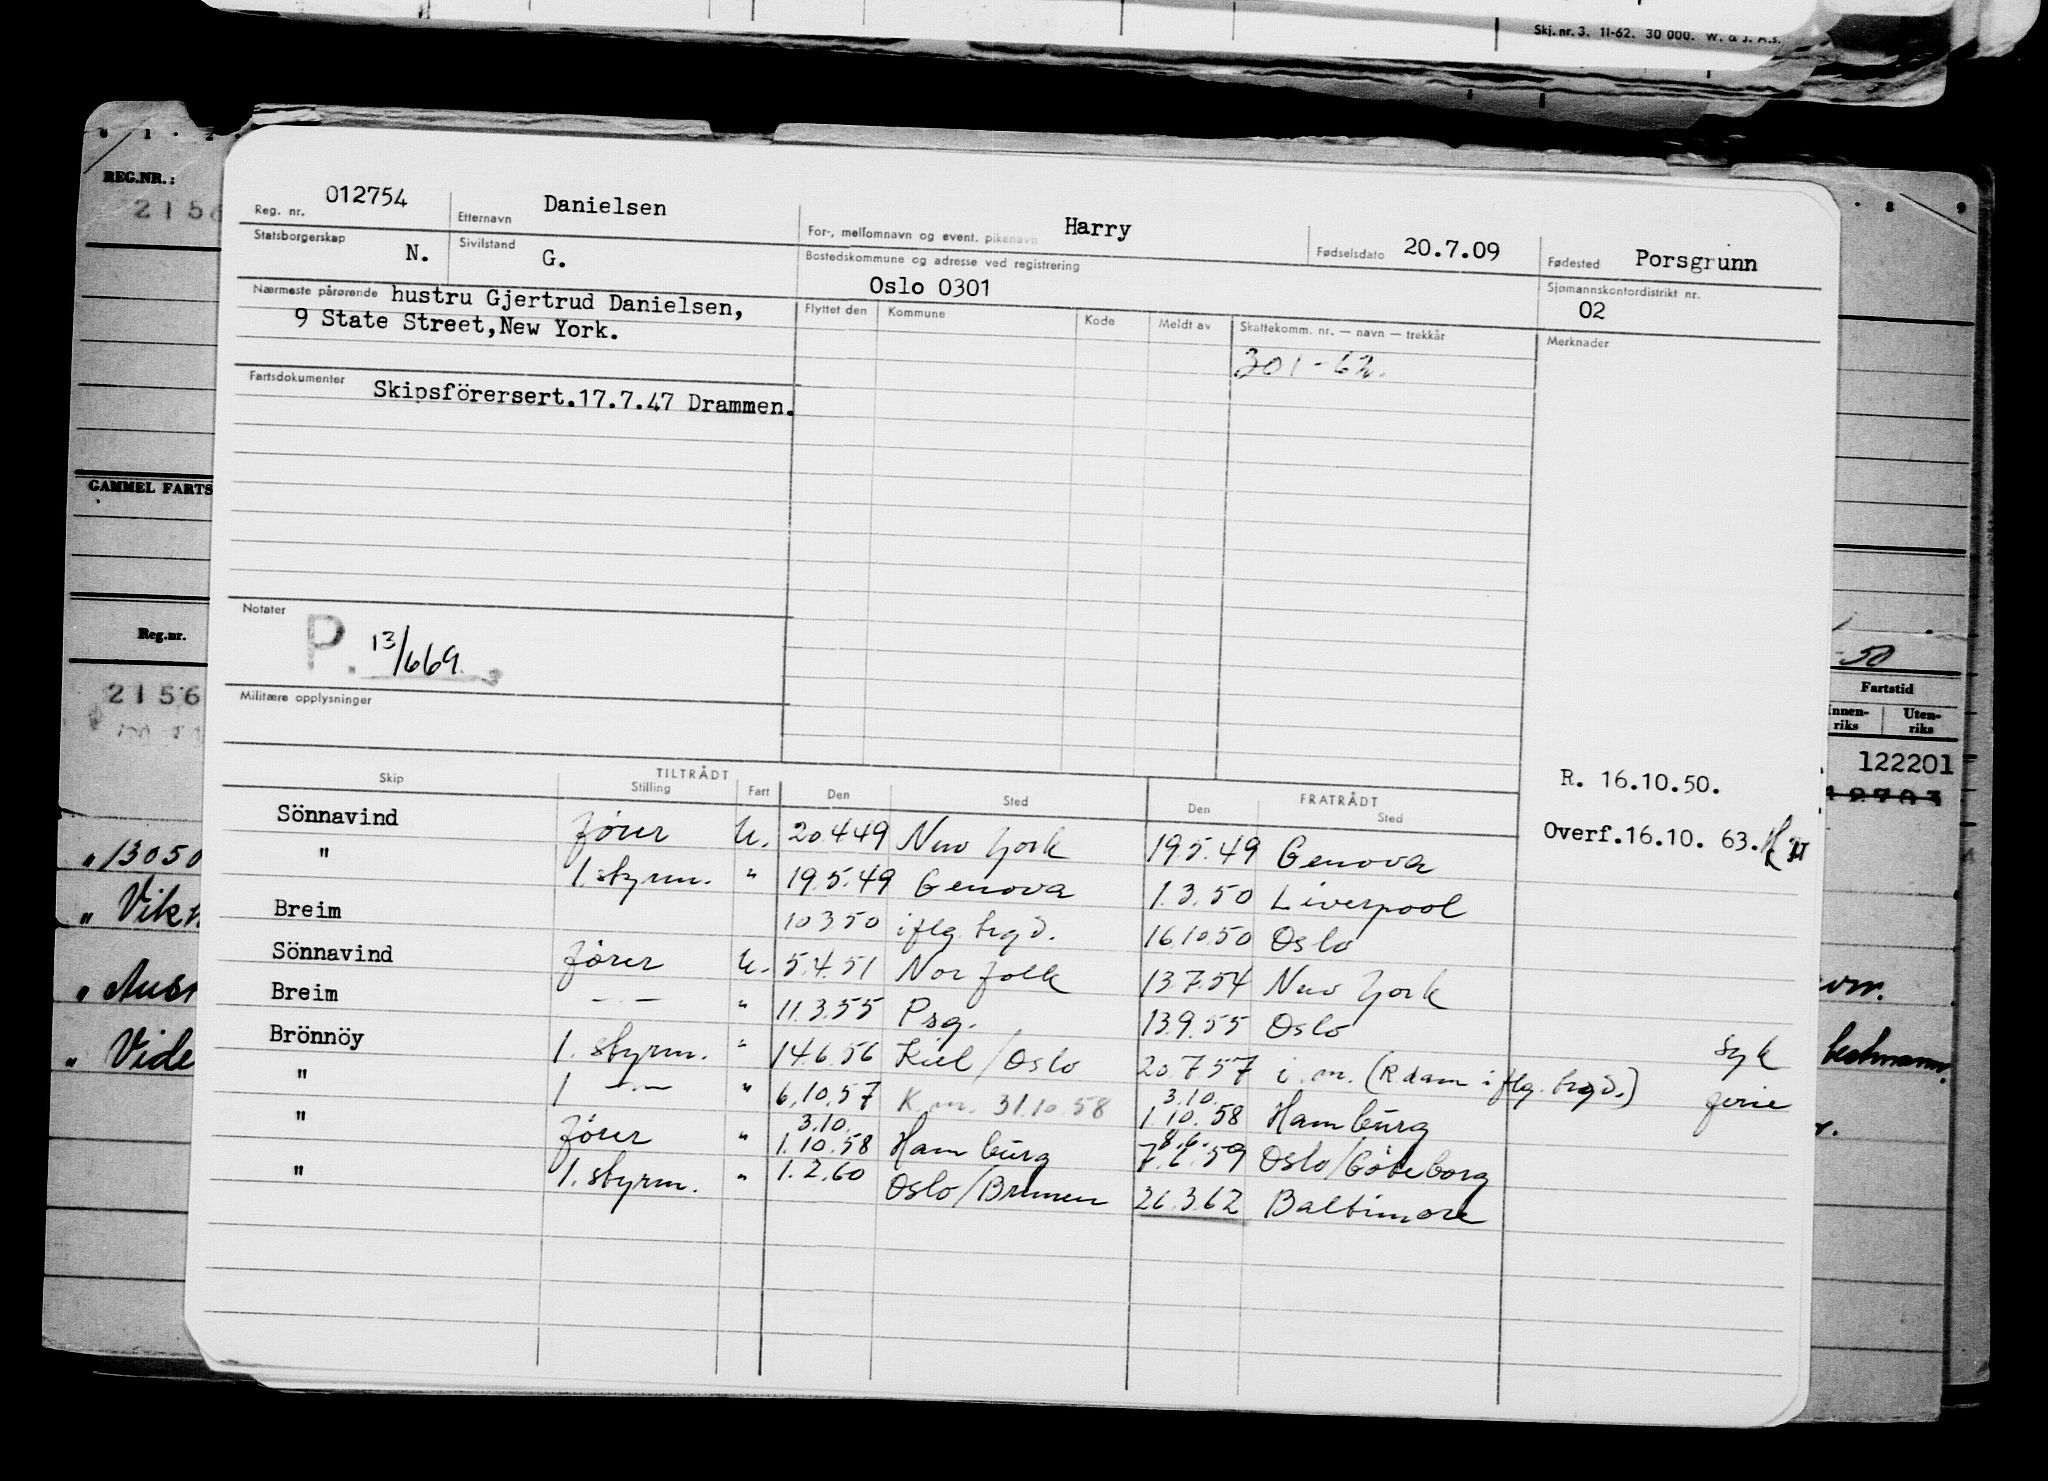 Skj. nr. 3. 11-62. 30 000. W. & J. A.s.
REG.NR.:
GAMMEL FARTS
Reg.nr.
2156
Vide
50
Fartstid
Innen-riks Uten-riks
122201
Reg. nr. 012754 Etternavn Danielsen For-, mellomnavn og event. pikenavn Harry Fødselsdato 20.7.09 Fødested Porsgrunn
Statsborgerskap N. Sivilstand G. Bostedskommune og adresse ved registrering Oslo 0301 Sjømannskontordistrikt nr. 02
Nærmeste pårørende hustru Gjertrud Danielsen,
9 State Street,New York.
Flyttet den Kommune Kode Meldt av Skattekomm. nr. — navn — trekkår Merknader
301-62.
Fartsdokumenter Skipsförersert.17.7.47 Drammen.
Notater
P. 13/669.
Militære opplysninger
R. 16.10.50.
Overf.16.10. 63.
TILTRÅDT FRATRÅDT
Skip Stilling Fart Den Sted Den Sted
Sönnavind fører U. 20.4.49 New York 19.5.49 Genova
" 1. styrm. " 19.5.49 Genova 1.3.50 Liverpool
Breim 10 3 50 iflg. brgd. 16.10.50 Oslo
Sönnavind fører U. 5.4.51 Norfolk 13.7.54 New York
Breim —"— " 11.3.55 Psg. 13.9.55 Oslo
Brönnöy 1. styrm. " 14.6.56 Kiel/Oslo 20.7.57 i.m. (Rdam iflg. brgd.) syk
" 1 —"— " 6.10.57 K.m. 31.10.58 3.10. 1.10.58 Hamburg ferie
" fører " 3.10. 1.10.58 Hamburg 8.6. 7.6.59 Oslo/Göteborg
" 1. styrm. " 1.2.60 Oslo/Bremen 26.3.62 Baltimore